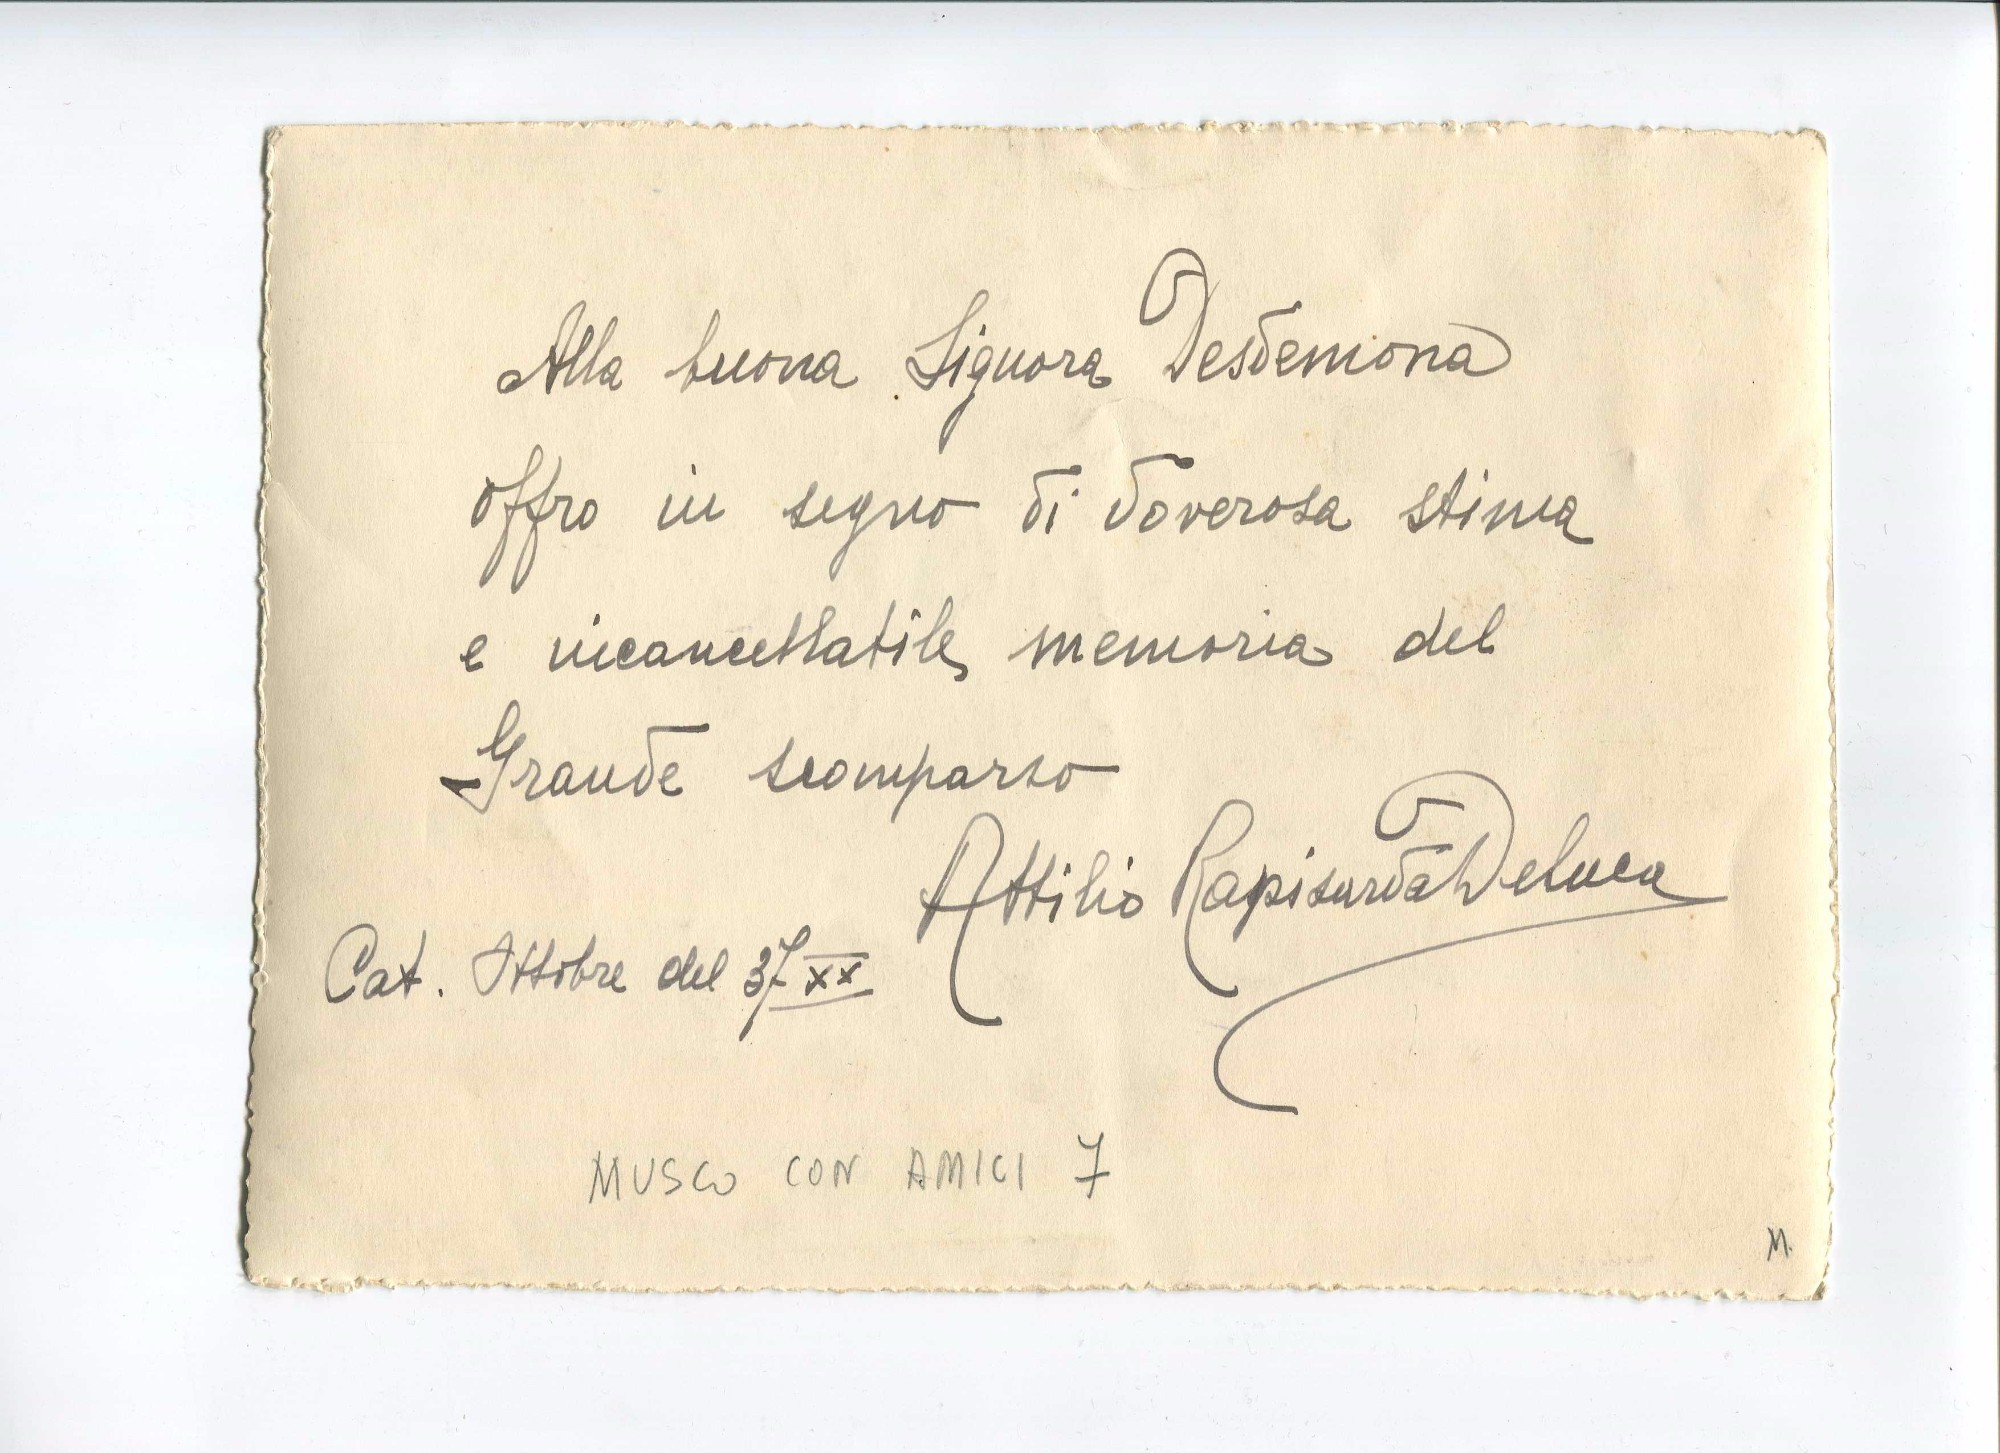 Alla buona Signora Desdemona
offro in segno di doverosa stima
e incancellabile memoria del
Grande scomparso
Attilio Rapisarda Deluca
Cat. Ottobre del 37 XX
MUSCO CON AMICI 7
M.